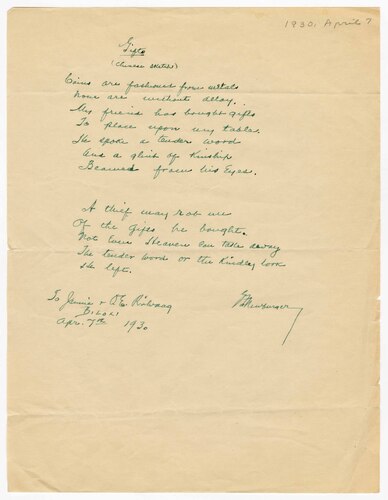 1930, April 7
Gifts
(Chinese sketch)
Coins are fashioned from metals
None are without alloy.
My friend has bought gifts
To place upon my table.
He spoke a tender word
And a glint of Kinship
Beamed from his Eyes.
A thief may rob me
Of the gifts he bought.
Not Even Heaven Can Take away
The tender word or the Kindly look
He left.
To Jennie & O.E. Rölvaag
Biloxi
Apr. 7th 1930